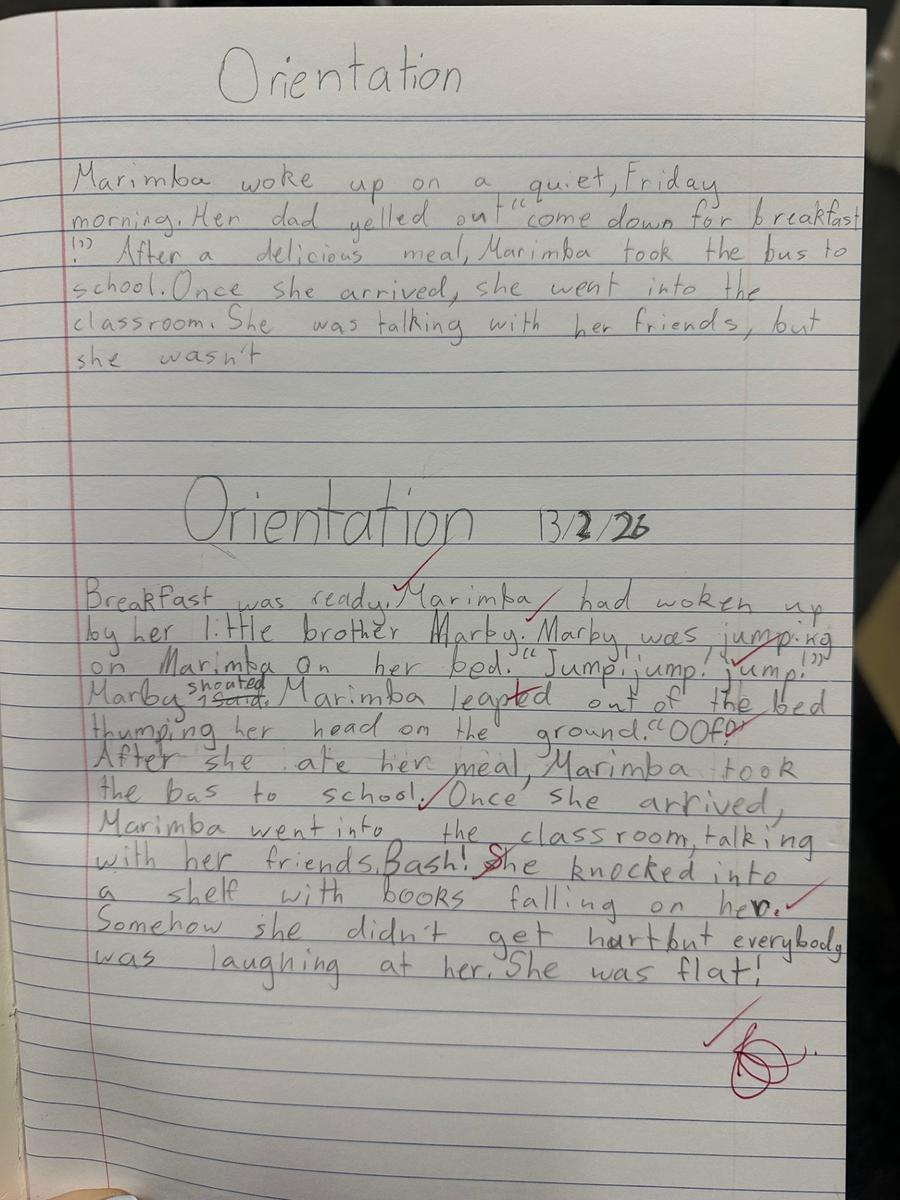 Orientation
Marimba woke up on a quiet, Friday
morning. Her dad yelled out "come down for breakfast
!" After a delicious meal, Marimba took the bus to
school. Once she arrived, she went into the
classroom. She was talking with her friends, but
she wasn't
Orientation 13/2/26
Breakfast was ready. Marimba had woken up
by her little brother Marby. Marby was jumping
on Marimba on her bed. "Jump! jump! jump!"
Marby shouted said. Marimba leapted out of the bed
thumping her head on the ground. "OOF!"
After she ate her meal, Marimba took
the bus to school. Once she arrived,
Marimba went into the classroom, talking
with her friends. Bash! She knocked into
a shelf with books falling on her.
Somehow she didn't get hart but everybody
was laughing at her. She was flat!